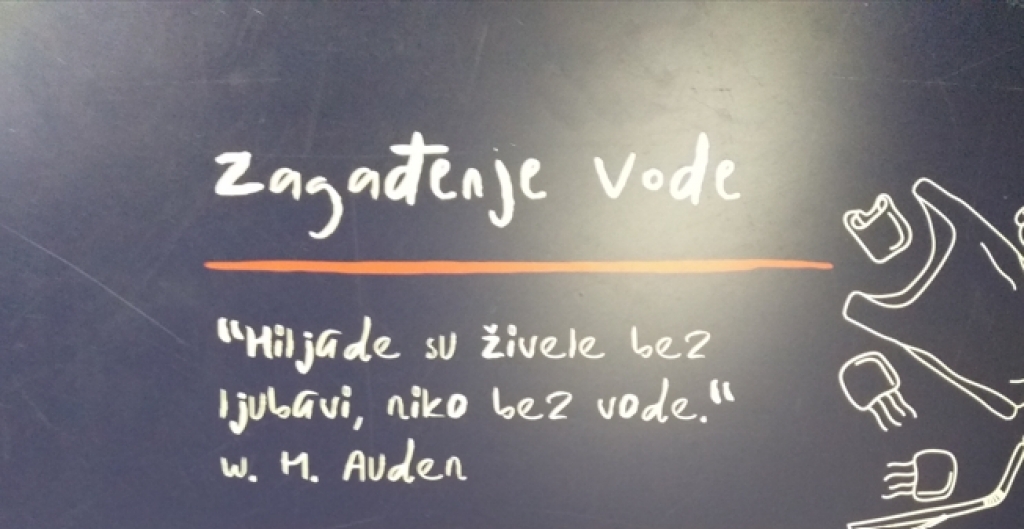 Zagađenje vode
“Hiljade su živele bez
ljubavi, niko bez vode.“
W. H. Auden